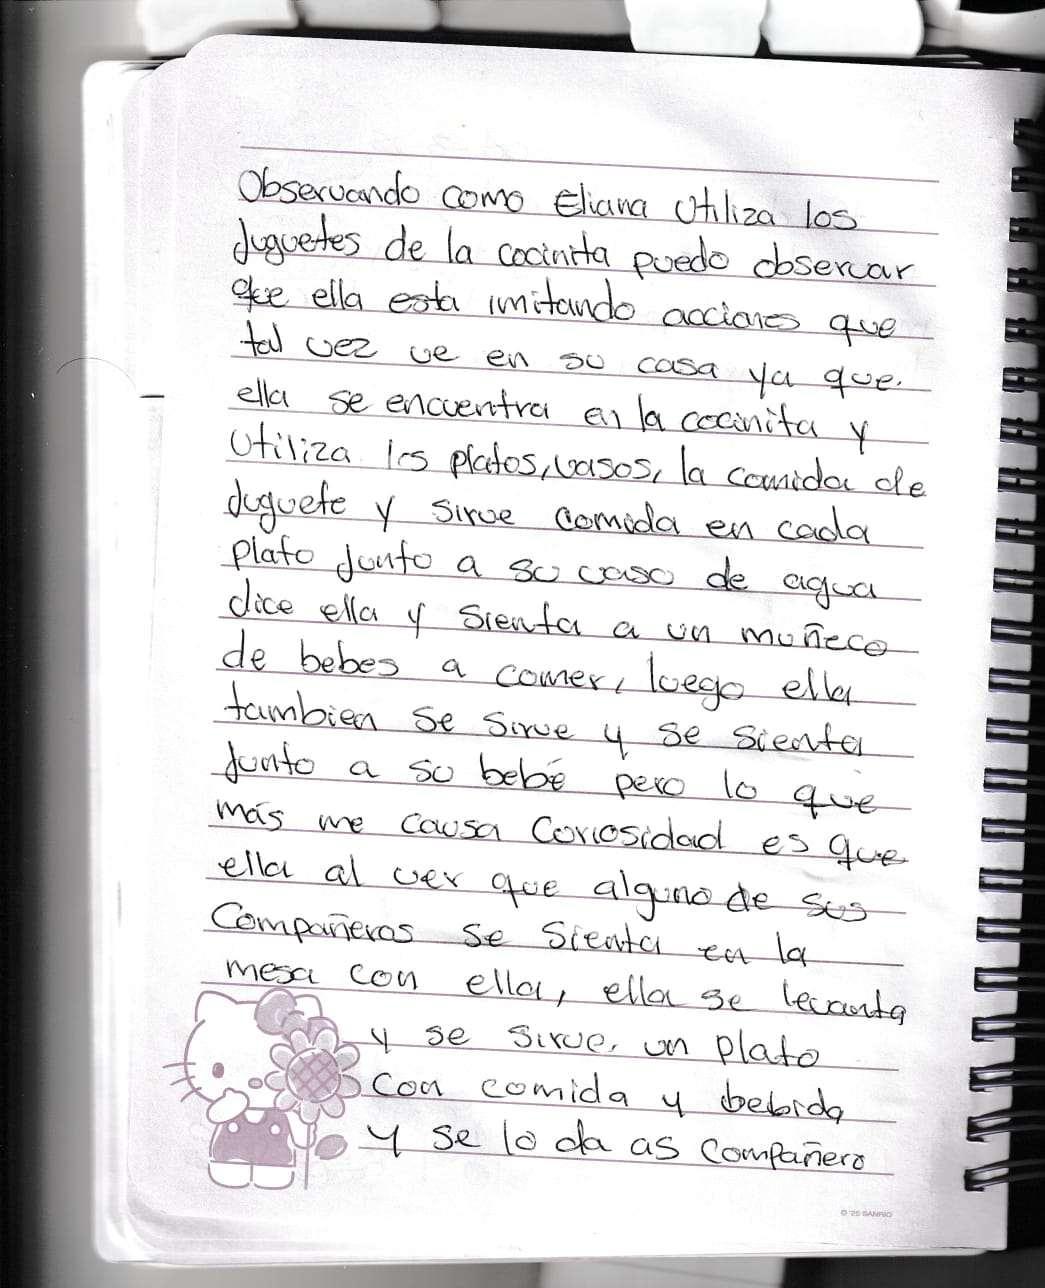 Observando como Eliana Utiliza los
Juguetes de la cocinita puedo observar
que ella esta imitando acciones que
tal vez ve en su casa ya que.
ella se encuentra en la cocinita y
Utiliza los platos, vasos, la comida de
Juguete y sirve comida en cada
plato Junto a su vaso de agua
dice ella y sienta a un muñeco
de bebes a comer, luego ella
tambien se sirve y se sienta
Junto a su bebé pero lo que
más me causa Coriosidad es que
ella al ver que alguno de sus
Compañeros se Sienta en la
mesa con ella, ella se levanta
y se sirve, un plato
Con comida y bebida
y se lo da as compañero
© '25 SANRIO